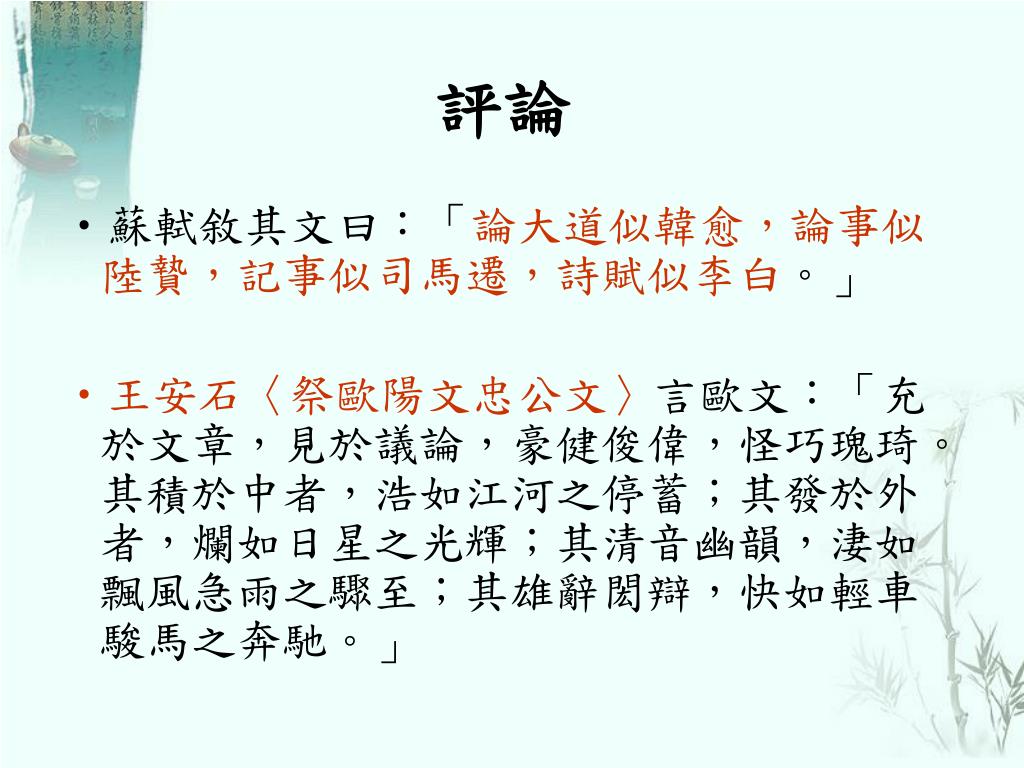 評論
•蘇軾敘其文曰：「論大道似韓愈，論事似
陸贄，記事似司馬遷，詩賦似李白。」
•王安石〈祭歐陽文忠公文〉言歐文：「充
於文章，見於議論，豪健俊偉，怪巧瑰琦。
其積於中者，浩如江河之停蓄；其發於外
者，爛如日星之光輝；其清音幽韻，淒如
飄風急雨之驟至；其雄辭閎辯，快如輕車
駿馬之奔馳。」